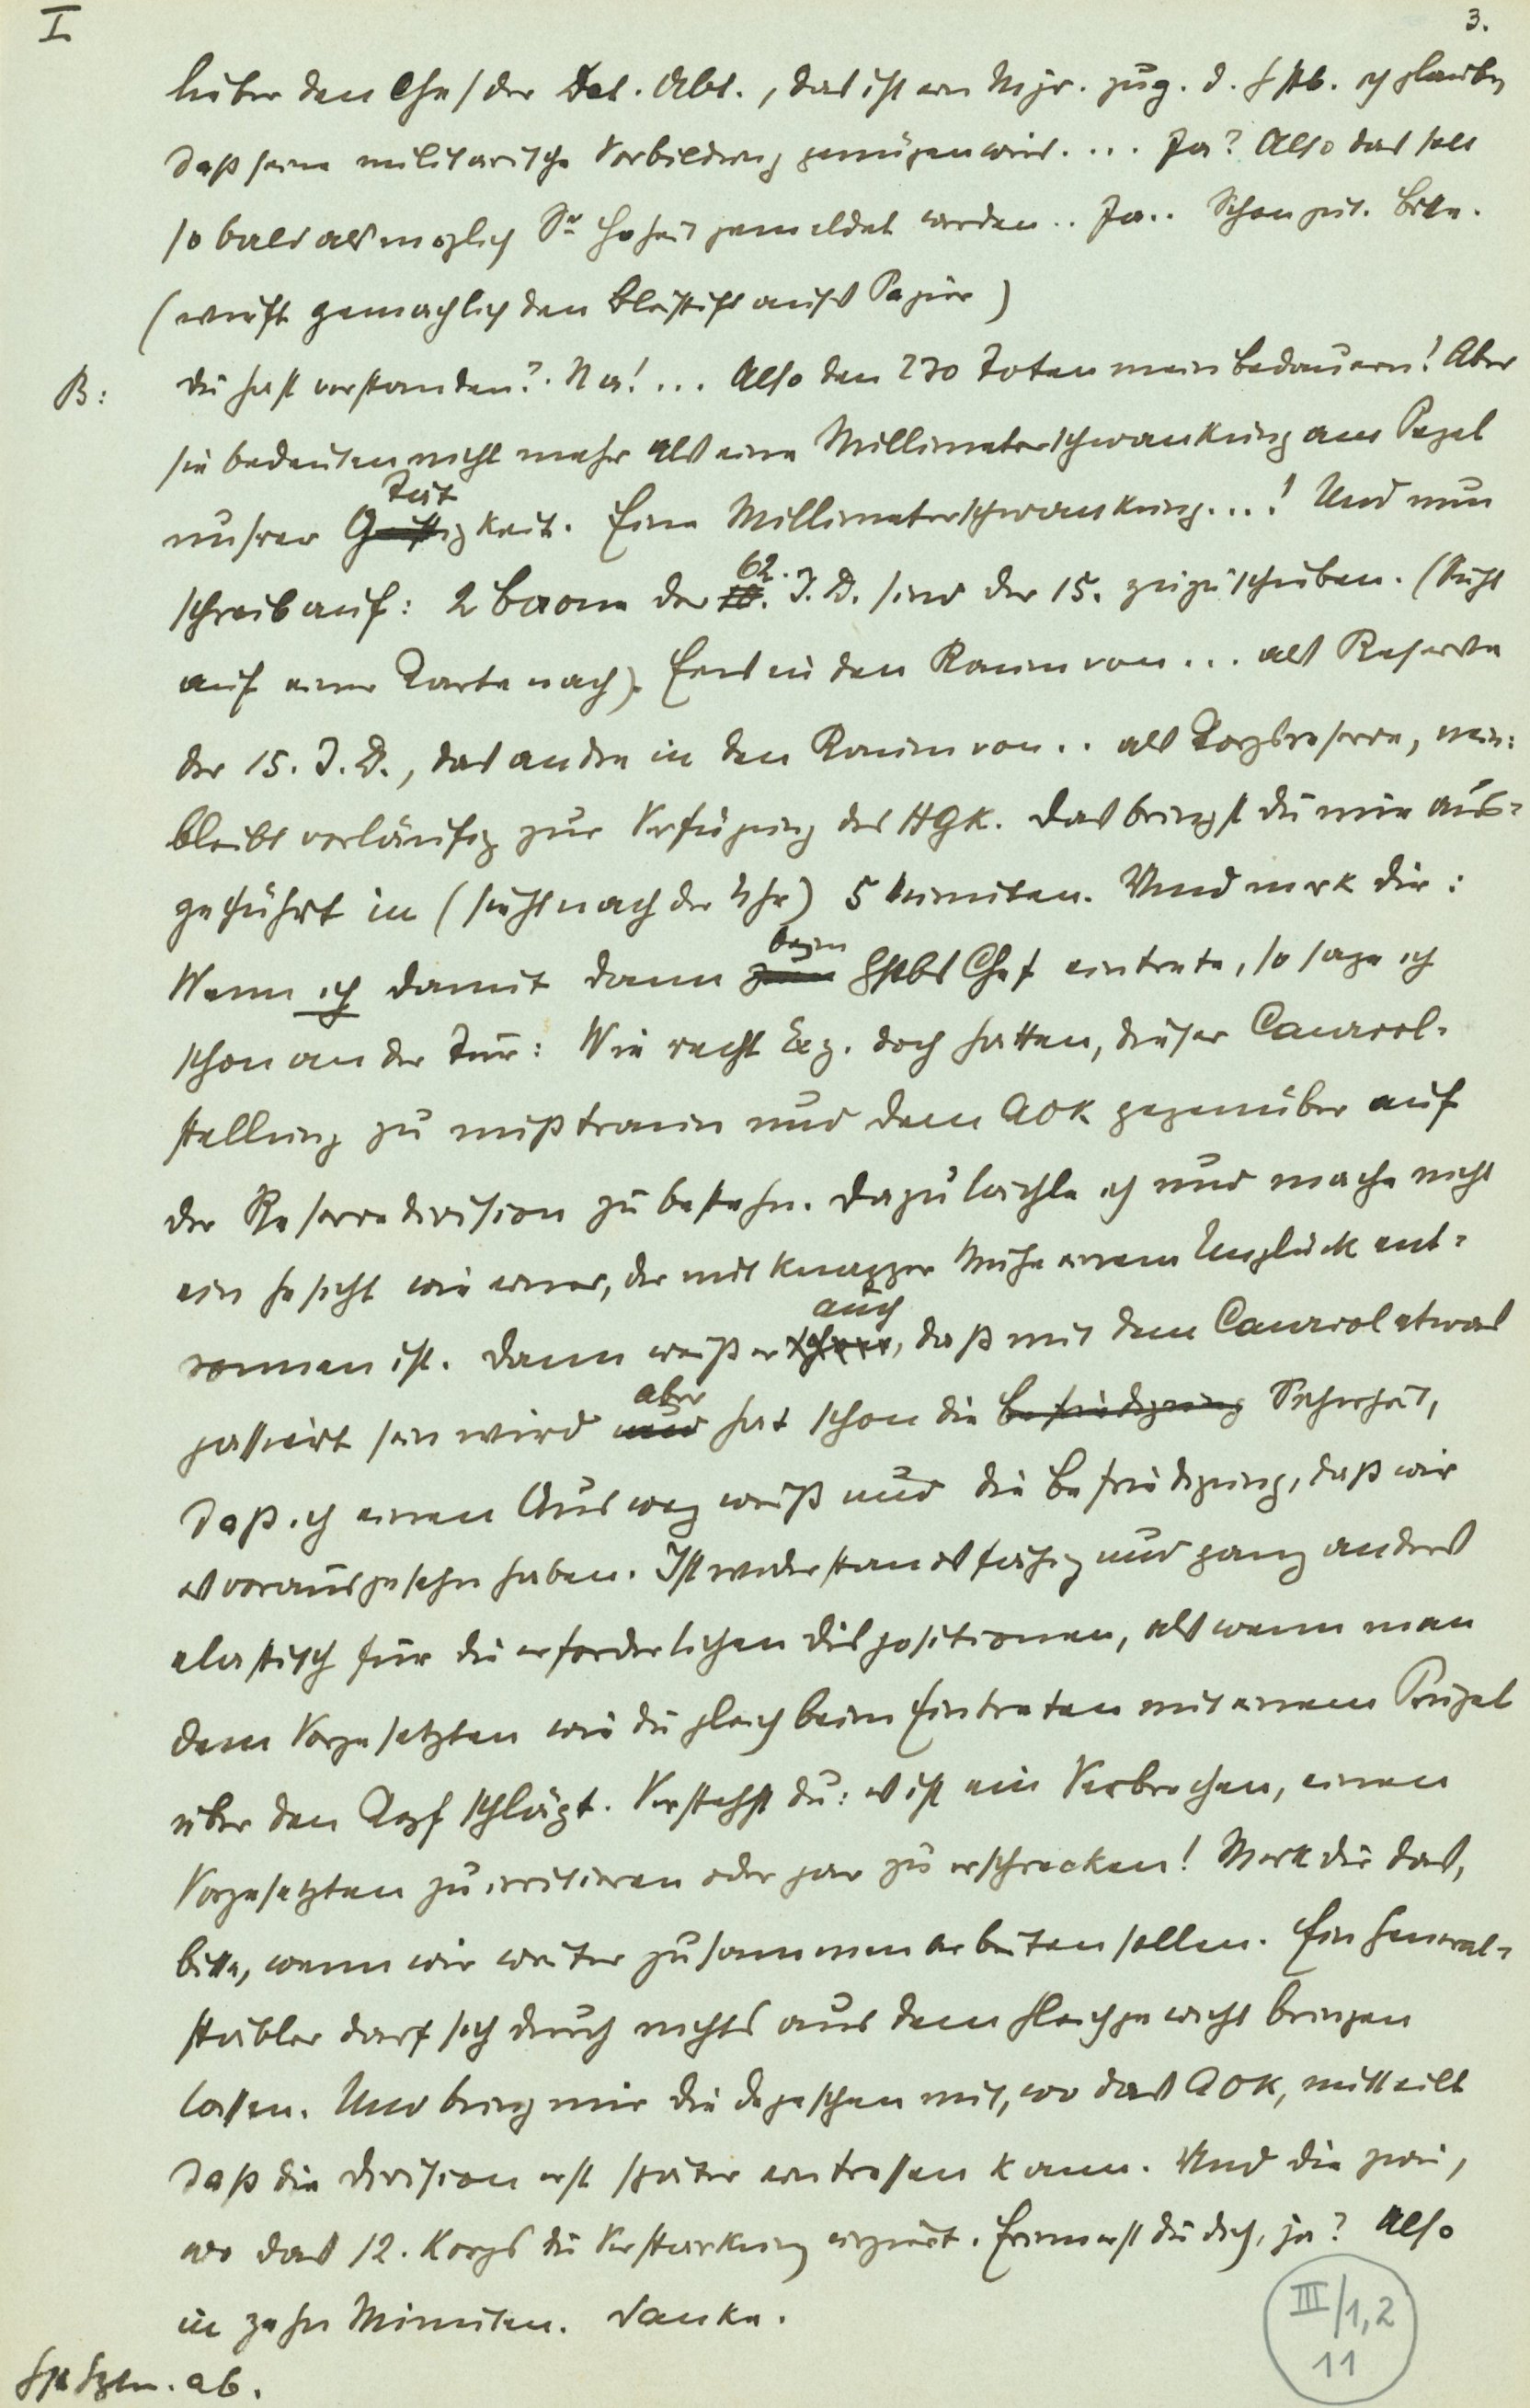 I
3.
lieber den Chef der Det. Abt., das ist ein Mjr. zug. d. Gstb. ich glaube,
daß seine militärische Vorbildung genügen wird. ... Ja? Also das soll
so bald als möglich Sr Hoheit gemeldet werden .. Ja .. Schon gut. Bitte.
(wirft gemächlich den Bleistift aufs Papier)
B: Du hast verstanden? Na! ... Also den 270 Toten mein Bedauern! Aber
sie bedeuten nicht mehr als eine Millimeterschwankung am Pegel
unsrer Tätigkeit. Eine Millimeterschwankung ...! Und nun
schreib auf: 2 Baone der 62. I. D. sind der 15. zuzuschieben. (Sieht
auf einer Karte nach). Eins in den Raum von ... als Reserve
der 15. I. D., das andre in den Raum von .. als Korpsreserve, nein:
bleibt vorläufig zur Verfügung des HGK. Das bringst du mir aus-
geführt in (sieht nach der Uhr) 5 Minuten. Und merk dir:
Wenn ich damit dann beim GstbsChef eintrete, so sage ich
schon an der Tür: Wie recht Exz. doch hatten, dieser Caurol-
stellung zu mißtraun und dem AOK gegenüber auf
der Reservedivision zu bestehn. Dazu lächle ich und mache nicht
ein Gesicht wie einer, der mit knapper Mühe einem Unglück ent-
ronnen ist. Dann weiß er auch, daß mit dem Caurol etwas
passiert sein wird aber hat schon die Sicherheit,
daß ich einen Ausweg weiß und die Befriedigung, daß wir
es vorausgesehn haben. Ist widerstandsfähig und ganz anders
elastisch für die erforderlichen Dispositionen, als wenn man
dem Vorgesetzten wie du gleich beim Eintreten mit einem Prügel
über den Kopf schlägt. Verstehst du: es ist ein Verbrechen, einen
Vorgesetzten zu irritieren oder gar zu erschrecken! Merk dir das,
bitte, wenn wir weiter zusammenarbeiten sollen. Ein General-
stäbler darf sich durch nichts aus dem Gleichgewicht bringen
lassen. Und bring mir die Depeschen mit, wo das AOK, mitteilt
daß die Division erst später eintreffen kann. Und die zwei,
wo das 12. Korps die Verstärkung urgiert. Erinnerst du dich, ja? Also
in zehn Minuten. Danke.
ab.
III/1,2
11